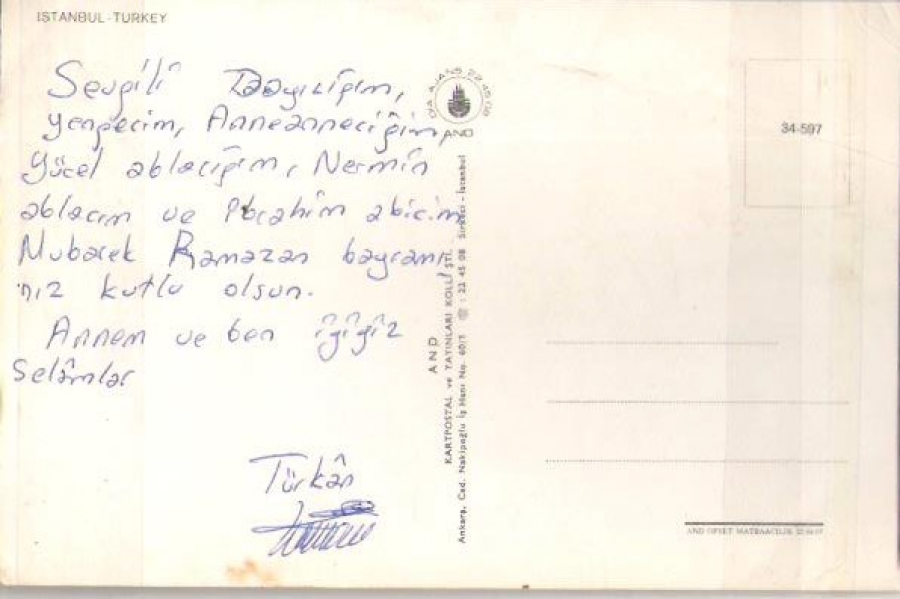 ISTANBUL - TURKEY
Sevgili Dayıcığım,
yengecim, Anneanneciğim,
Yücel ablacığım, Nermin
ablacım ve İbrahim abicim
Mubarek Ramazan bayramı
nız kutlu olsun.
Annem ve ben iyiyiz
Selâmlar
Türkân
AND
AND
KARTPOSTAL ve YAYINLARI KOLL. ŞTİ.
Ankara, Cad. Nakipoğlu İş Hanı No. 60/1 : 22 45 08 Sirkeci - İstanbul
34-597
AND OFSET MATBAACILIK